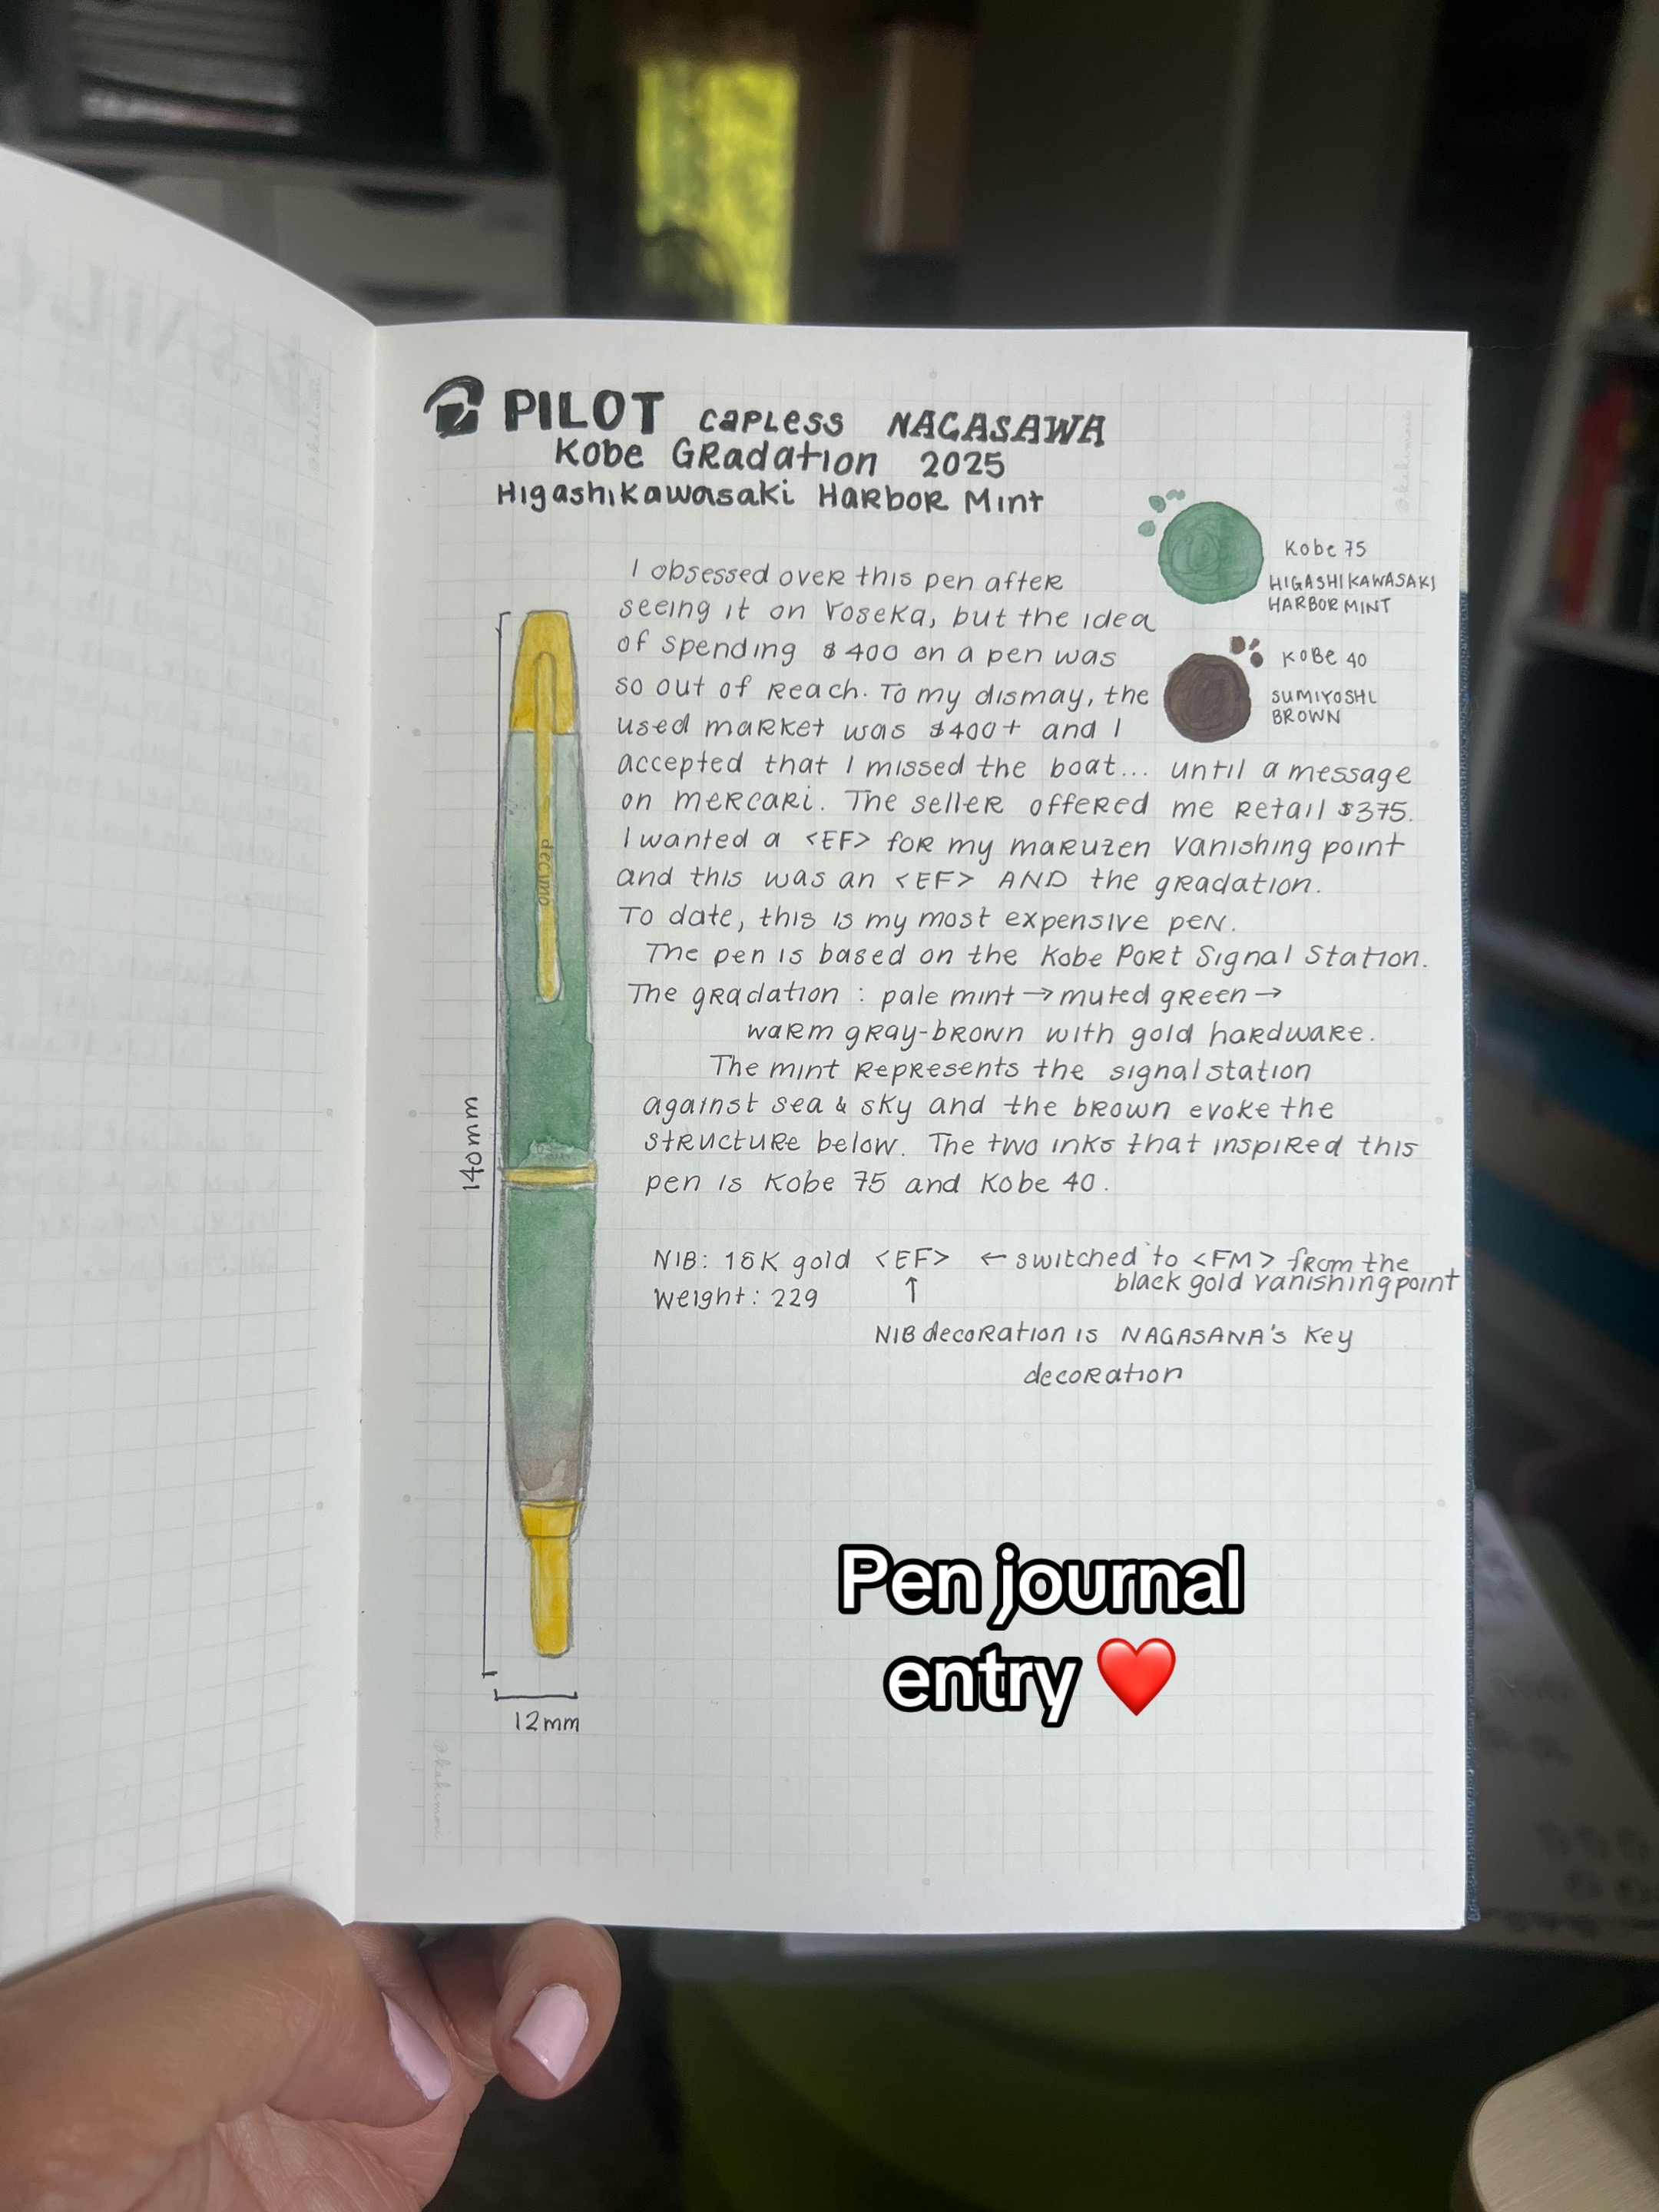 PILOT capless NAGASAWA
Kobe Gradation 2025
Higashikawasaki Harbor Mint
Kobe 75
HIGASHIKAWASAKI
HARBOR MINT
Kobe 40
SUMIYOSHI
BROWN
I obsessed over this pen after
seeing it on Yoseka, but the idea
of spending $400 on a pen was
so out of reach. To my dismay, the
used market was $400+ and I
accepted that I missed the boat... until a message
on mercari. The seller offered me retail $375.
I wanted a <EF> for my maruzen vanishing point
and this was an <EF> AND the gradation.
To date, this is my most expensive pen.
The pen is based on the Kobe Port Signal Station.
The gradation : pale mint → muted green →
warm gray-brown with gold hardware.
The mint represents the signal station
against sea & sky and the brown evoke the
structure below. The two inks that inspired this
pen is Kobe 75 and Kobe 40.
NIB: 18K gold <EF> ← switched to <FM> from the
black gold vanishing point
Weight: 22g
↑
NIB decoration is NAGASANA's key
decoration
decimo
140mm
12mm
Pen journal
entry ❤️